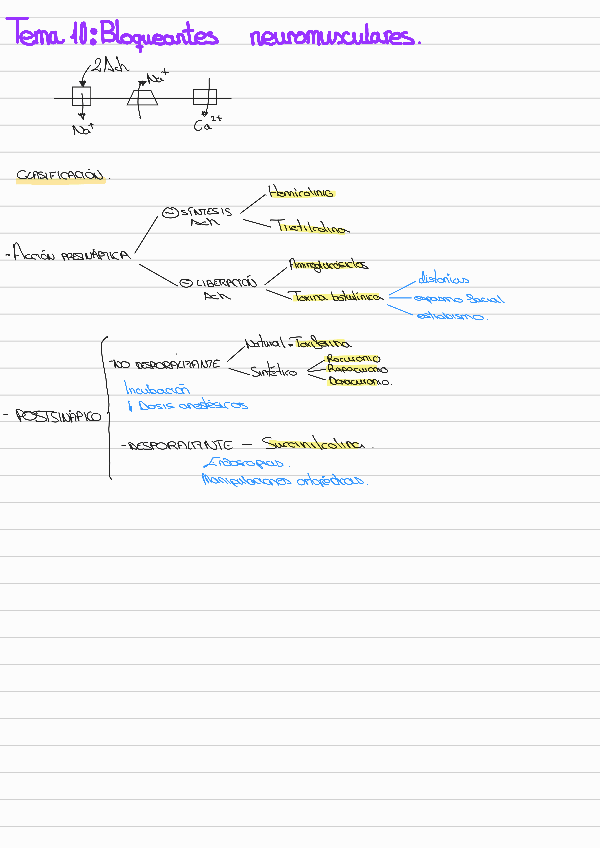 Tema 10: Bloqueantes neuromusculares.
2Ach
Na⁺
Na⁺
Ca²⁺
CLASIFICACIÓN.
- ACCIÓN PRESINÁPTICA
⊖ SÍNTESIS Ach
Hemicolinio
Trietilcolina
⊖ LIBERACIÓN Ach
Aminoglucósidos
Toxina botulínica
distonías
espasmo facial
estrabismo.
- POSTSINÁPICO
-NO DESPORALIZANTE
Natural - Toxiferina
Sintético
Rocuronio
Rapacuronio
Doxacuronio.
Incubación
↓ Dosis anestésicos
-DESPORALIZANTE — Succinilcolina.
Endoscopias.
Manipulaciones ortopédicas.